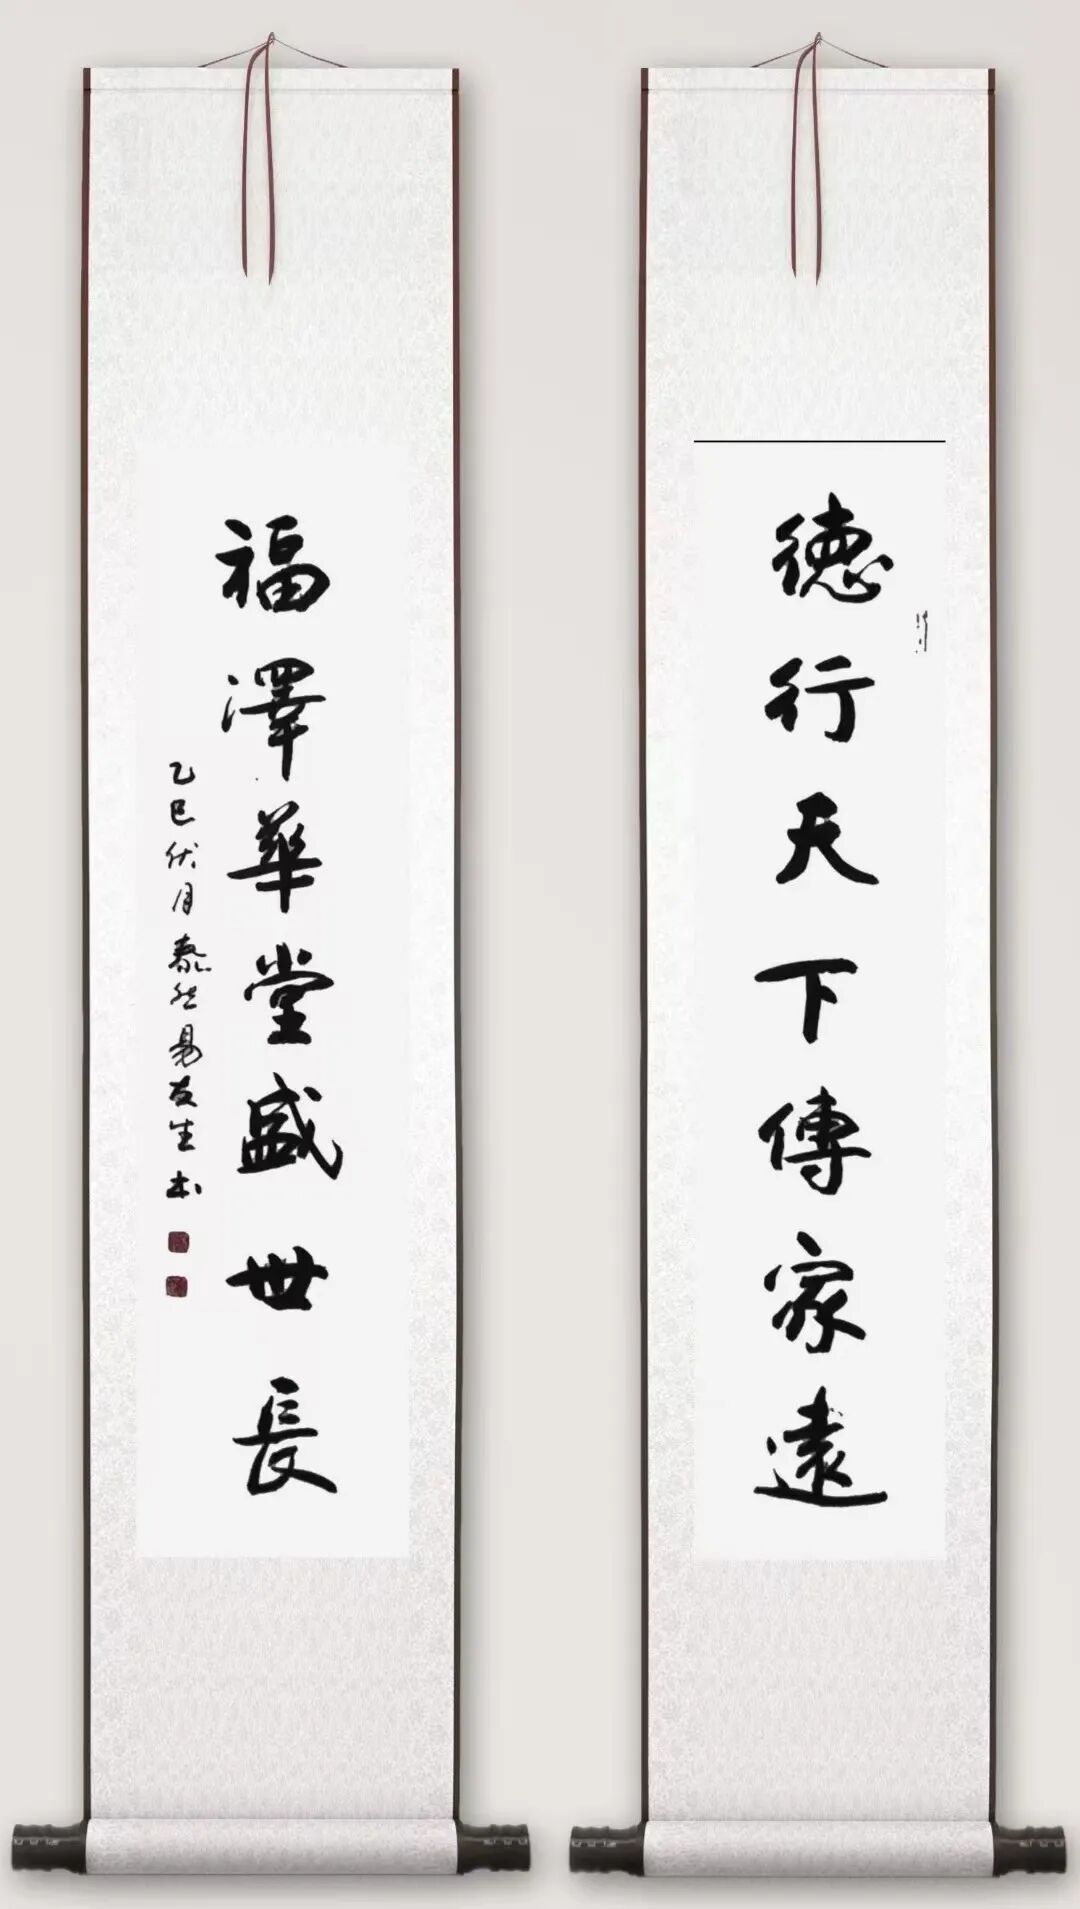 德行天下傳家遠
福澤華堂盛世長
乙巳伏月泰然易友生书